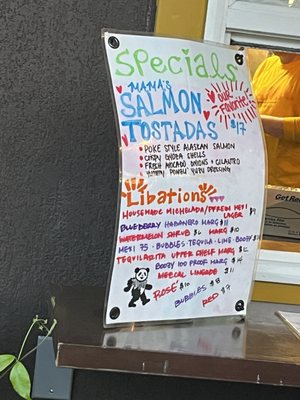 Specials
MAMA'S
SALMON
TOSTADAS
OUR
FAVORITE!
$17
• POKE STYLE ALASKAN SALMON
• CRISPY GYOZA SHELLS
• FRESH AVOCADO ONIONS + CILANTRO
• YUMMY PONZU YUZU DRESSING
Libations
HOUSEMADE MICHELADA/
MEXI
LAGER $9
BLUEBERRY HABANERO MARG $11
WATERMELON SHRUB $6 MARG $10
MEXI 75 - BUBBLES TEQUILA - LIME - BOOZY
TEQUILASITA UPPER SHELF MARG $12
BOOZY 100 PROOF MARG $14
MEZCAL LIMEADE $11
ROSÉ $10
BUBBLES $8
RED $7
Get